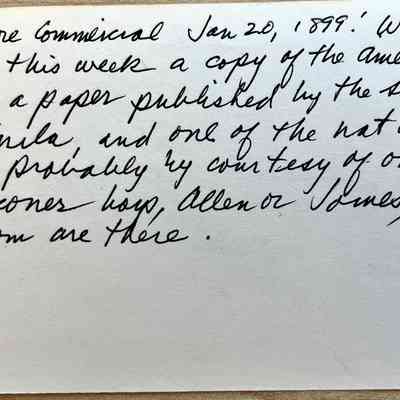 re Commercial Jan 20, 1899. W
this week a copy of the Ame
a paper published by the s
nila, and one of the nat
probably by courtesy of o
coner boys, Allen or James,
om are there.